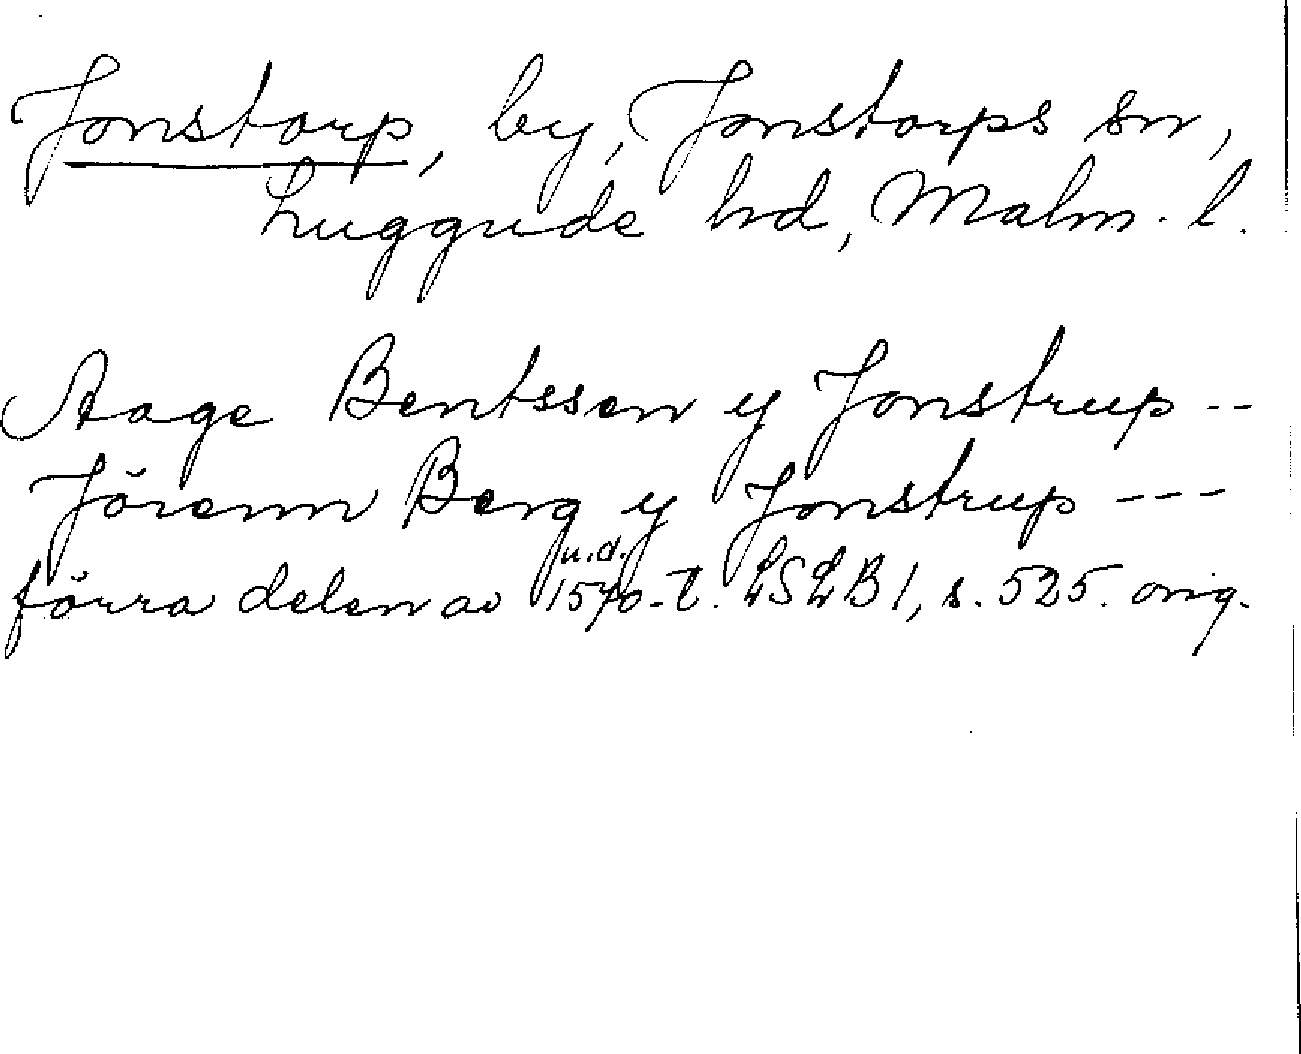 Jonstorp, by, Jonstorps sn,
Luggude hd, Malm. l.
Aage Bentssen y Jonstrup --
Jörenn Berg y Jonstrup ---
u.d.
förra delen av 1570-t. LSLB 1, s. 525. orig.